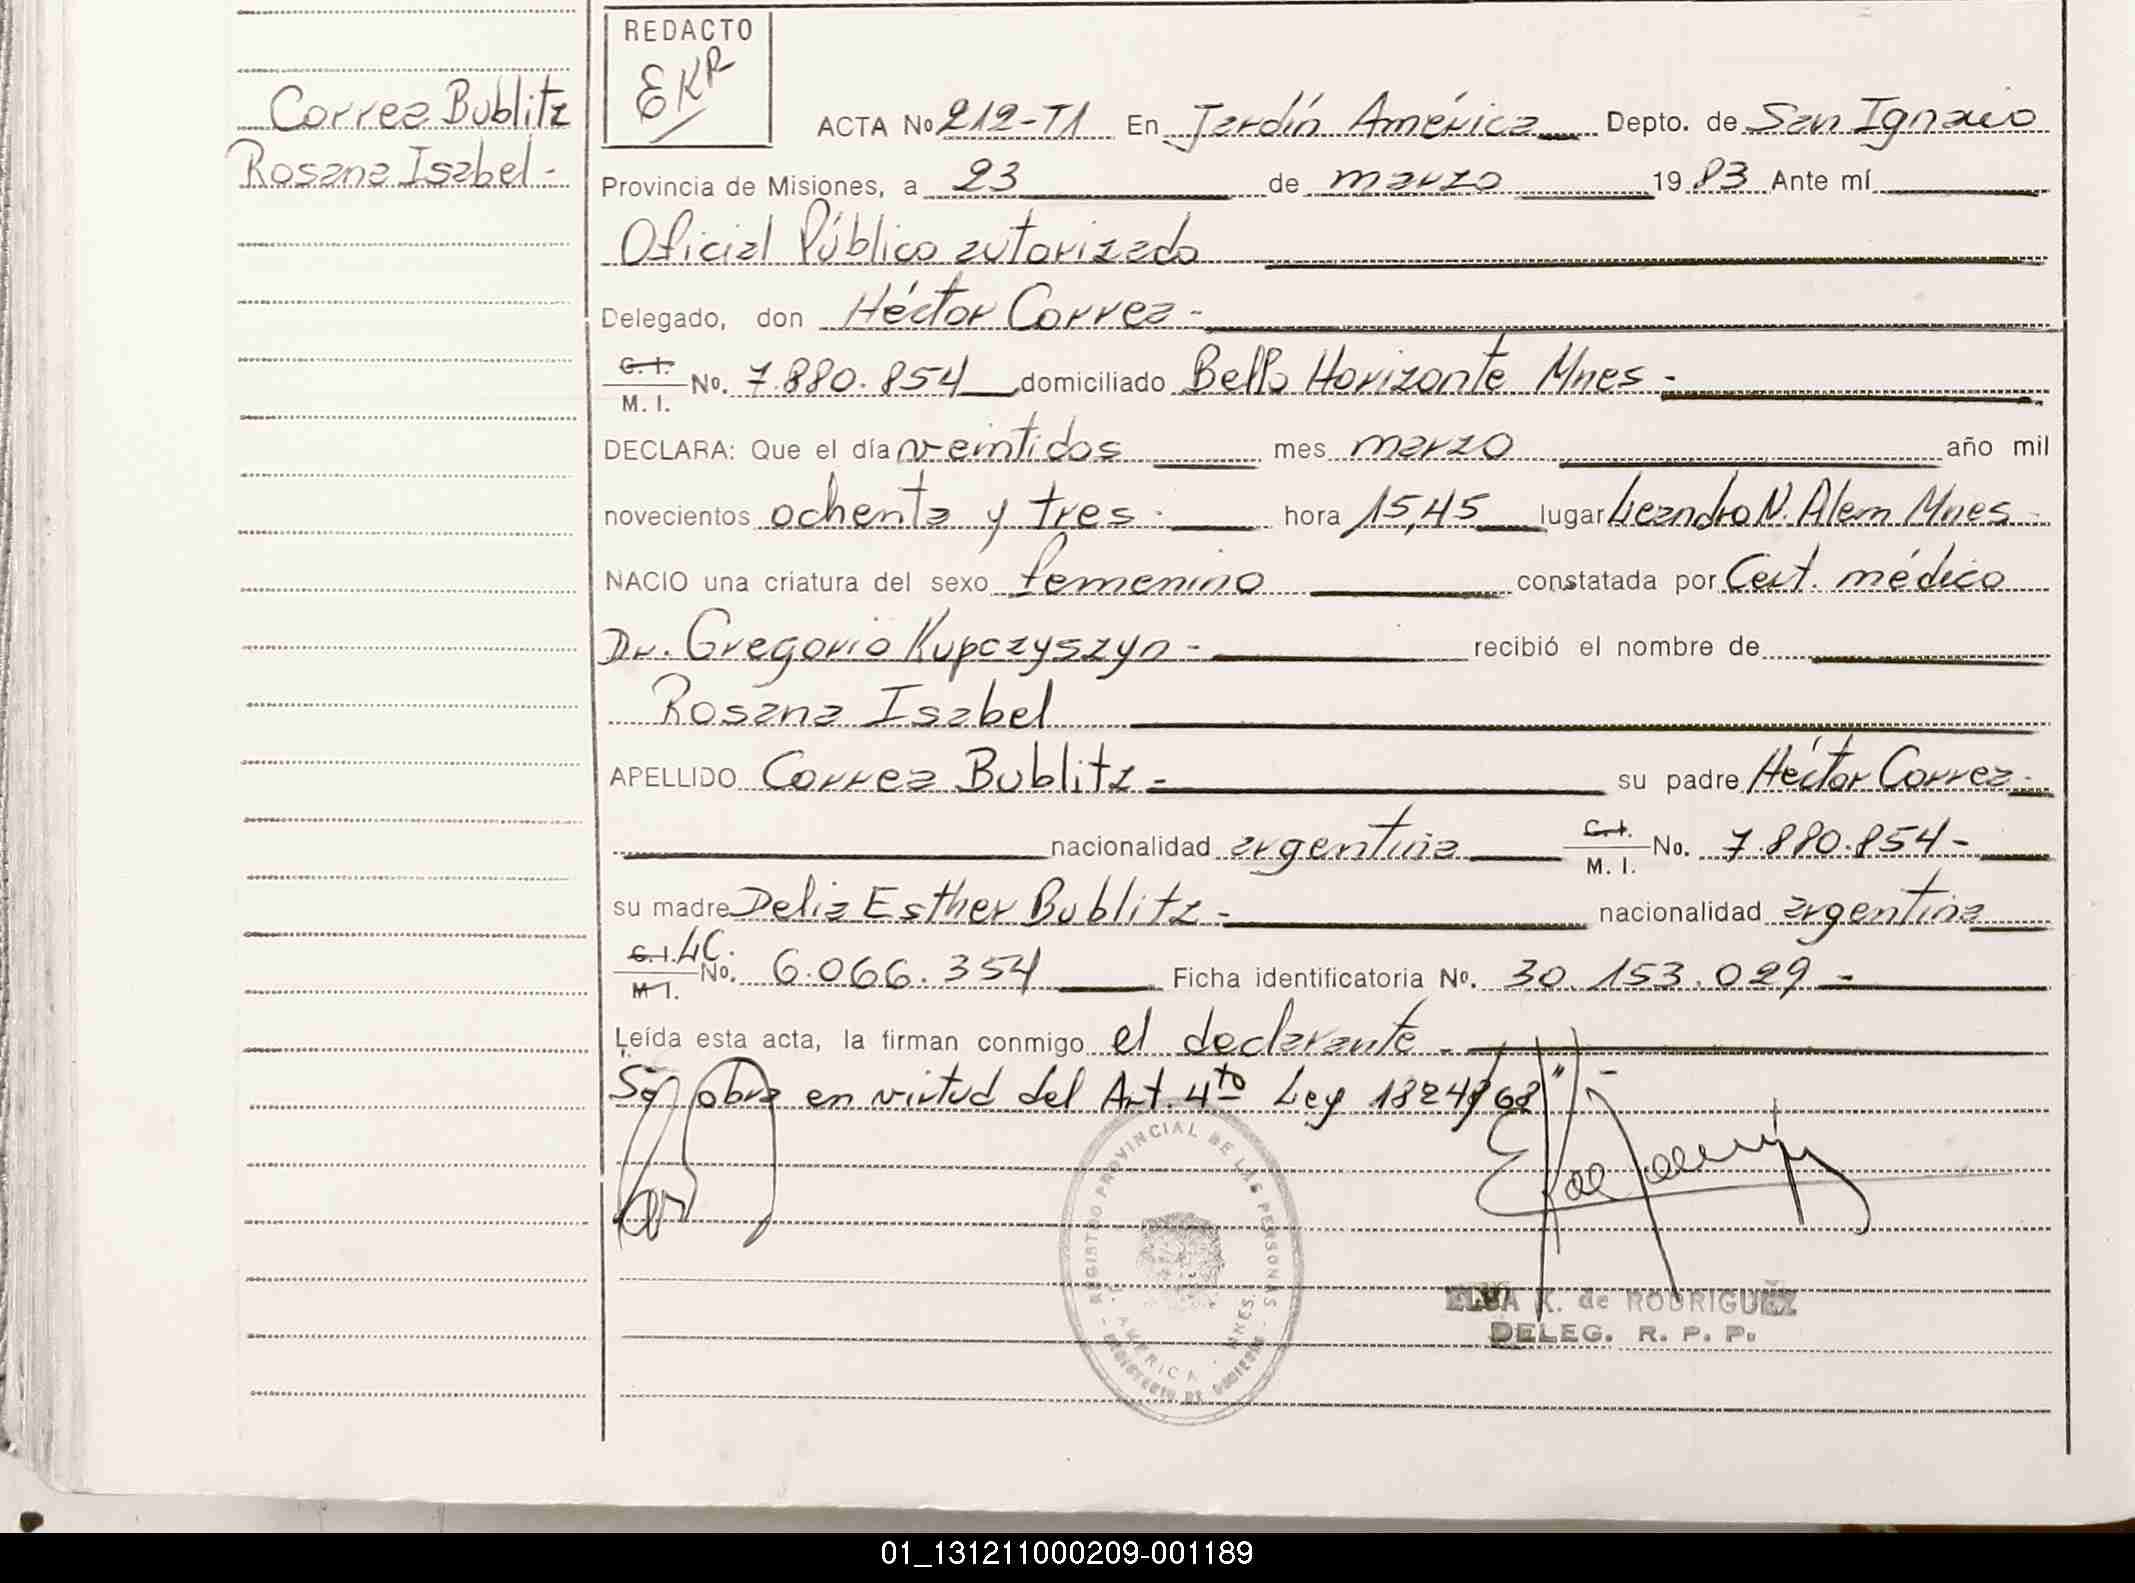 Correa Bublitz
Rosana Isabel -
REDACTO
EKR
ACTA No 212-T1 En Jardín América Depto. de San Ignacio
Provincia de Misiones, a 23 de marzo 1983 Ante mí
Oficial Público autorizado
Delegado, don Héctor Correa -
C. I.
M. I. No. 7.880.854 domiciliado Bello Horizonte Mnes -
DECLARA: Que el día veintidos mes marzo año mil
novecientos ochenta y tres - hora 15,45 lugar Leandro N. Alem Mnes -
NACIO una criatura del sexo femenino constatada por Cert. médico
Dr. Gregorio Kupczyszyn - recibió el nombre de
Rosana Isabel
APELLIDO Correa Bublitz - su padre Héctor Correa -
nacionalidad argentina C. I.
M. I. No. 7.880.854 -
su madre Delia Esther Bublitz - nacionalidad argentina
C. I. LC.
M I. No. 6.066.354 Ficha identificatoria No. 30.153.029 -
Leída esta acta, la firman conmigo el declarante -
Se obra en virtud del Art. 4to Ley 18248/68" -
REGISTRO PROVINCIAL DE LAS PERSONAS
AMERICA - MNES.
MINISTERIO DE GOBIERNO
ELSA K. de RODRIGUEZ
DELEG. R. P. P.
01_131211000209-001189